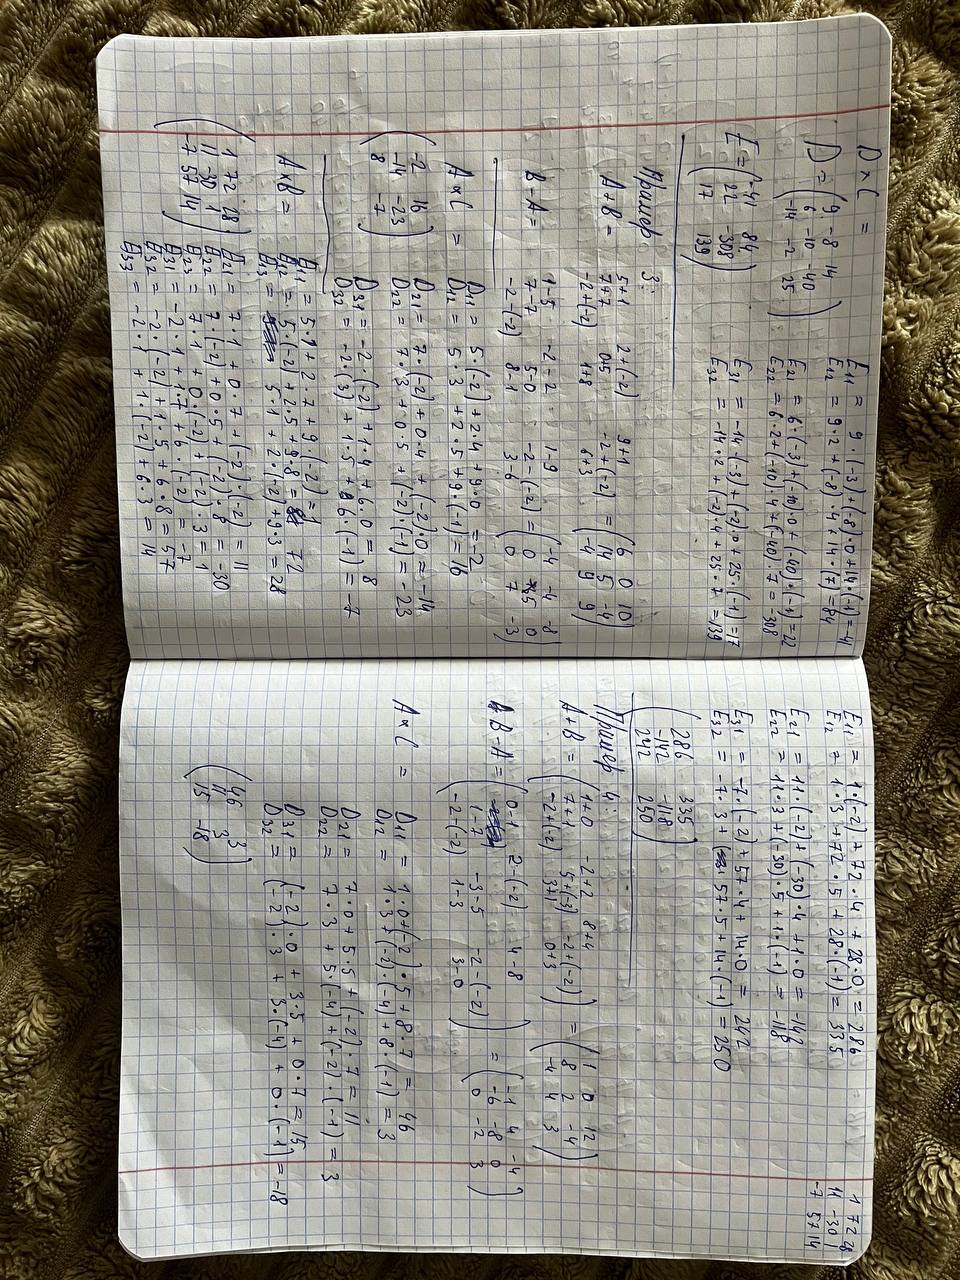 D × C =
D = ( 9 -8 14
6 -10 -40
-14 -2 25 )
E = ( -41 84
22 -308
17 139 )
E11 = 9·(-3)+(-8)·0+14·(-1)=-41
E12 = 9·2+(-8)·4+14·(7)=84
E21 = 6·(-3)+(-10)·0+(-40)·(-1)=22
E22 = 6·2+(-10)·4+(-40)·7=-308
E31 = -14·(-3)+(-2)·0+25·(-1)=17
E32 = -14·2+(-2)·4+25·7=139
Пример 3:
A+B = 5+1 2+(-2) 9+1 = ( 6 0 10
7+7 0+5 -2+(-2) 14 5 -4
-2+(-2) 1+8 6+3 -4 9 9 )
B-A = 1-5 -2-2 1-9 = ( -4 -4 -8
7-7 5-0 -2-(-2) 0 5 0
-2-(-2) 8-1 3-6 0 7 -3 )
A × C = D11 = 5·(-2)+2·4+9·0=-2
D12 = 5·3+2·5+9·(-1)=16
( -2 16
-14 -23
8 -7 )
D21 = 7·(-2)+0·4+(-2)·0=-14
D22 = 7·3+0·5+(-2)·(-1)=-23
D31 = -2·(-2)+1·4+6·0=8
D32 = -2·(3)+1·5+6·(-1)=-7
A×B = E11 = 5·1+2·7+9·(-2)=1
E12 = 5·(-2)+2·5+9·8= 72
E13 = 5·1+2·(-2)+9·3=28
( 1 72 28
11 -30 1
-7 57 14 )
E21 = 7·1+0·7+(-2)·(-2)=11
E22 = 7·(-2)+0·5+(-2)·8=-30
E23 = 7·1+0·(-2)+(-2)·3=1
E31 = -2·1+1·7+6·(-2)=-7
E32 = -2·(-2)+1·5+6·8=57
E33 = -2·1+1·(-2)+6·3=14
E11 = 1·(-2)+72·4+28·0=286
E12 = 1·3+72·5+28·(-1)=335
1 72 28
11 -30 1
-7 57 14
E21 = 11·(-2)+(-30)·4+1·0=-142
E22 = 11·3+(-30)·5+1·(-1)=-118
E31 = -7·(-2)+57·4+14·0=242
E32 = -7·3+57·5+14·(-1)=250
( 286 335
-142 -118
242 250 )
Пример 4:
A+B = ( 1+0 -2+2 8+4 ) = ( 1 0 12
7+1 5+(-3) -2+(-2) 8 2 -4
-2+(-2) 3+1 0+3 -4 4 3 )
B-A = ( 0-1 2-(-2) 4-8 ) = ( -1 4 -4
1-7 -3-5 -2-(-2) -6 -8 0
-2-(-2) 1-3 3-0 0 -2 3 )
A × C = D11 = 1·0+(-2)·5+8·7=46
D12 = 1·3+(-2)·(-4)+8·(-1)=3
D21 = 7·0+5·5+(-2)·7=11
D22 = 7·3+5·(-4)+(-2)·(-1)=3
D31 = (-2)·0+3·5+0·7=15
D32 = (-2)·3+3·(-4)+0·(-1)=-18
( 46 3
11 3
15 -18 )